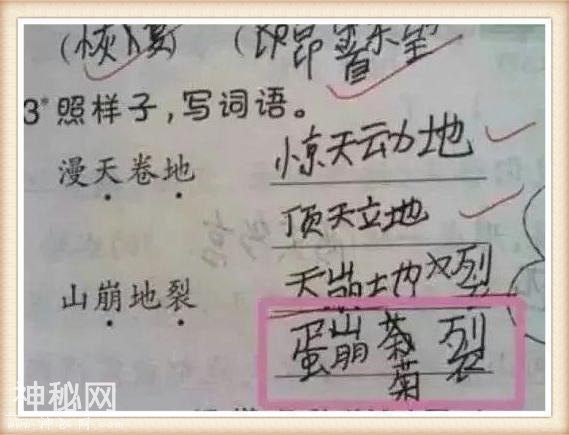 (恢复) (昂首东望
3*照样子,写词语。
漫天卷地 惊天动地
顶天立地
山崩地裂 天崩地裂
蛋崩菊裂
神秘网